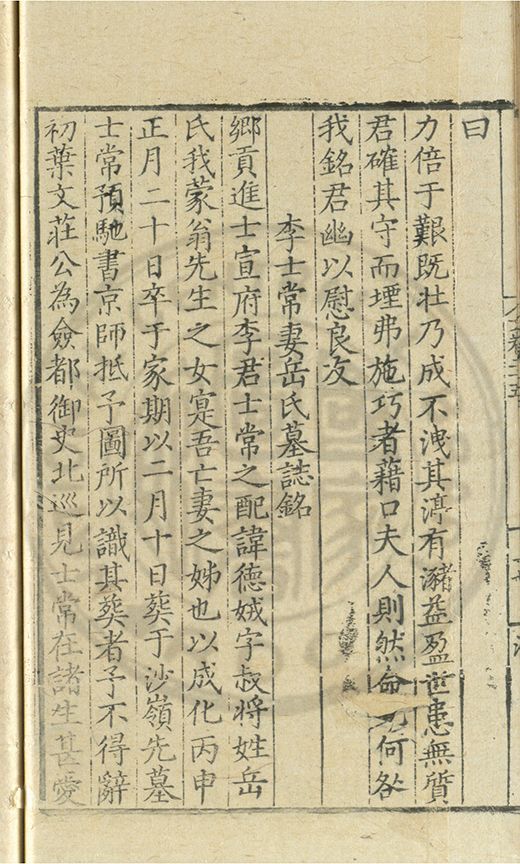 曰
力倍于艱既壮乃成不洩其渟有瀦益盈世患無質
君確其守而堙弗施巧者藉口夫人則然命何咎
我銘君幽以慰良友
李士常妻岳氏墓誌銘
鄉貢進士宣府李君士常之配諱德娀字叔將姓岳
氏我蒙翁先生之女寔吾亡妻之姊也以成化丙申
正月二十日卒于家期以二月十日葬于沙嶺先墓
士常預馳書京師抵予圖所以識其葬者予不得辭
初葉文莊公為僉都御史北巡見士常在諸生甚愛